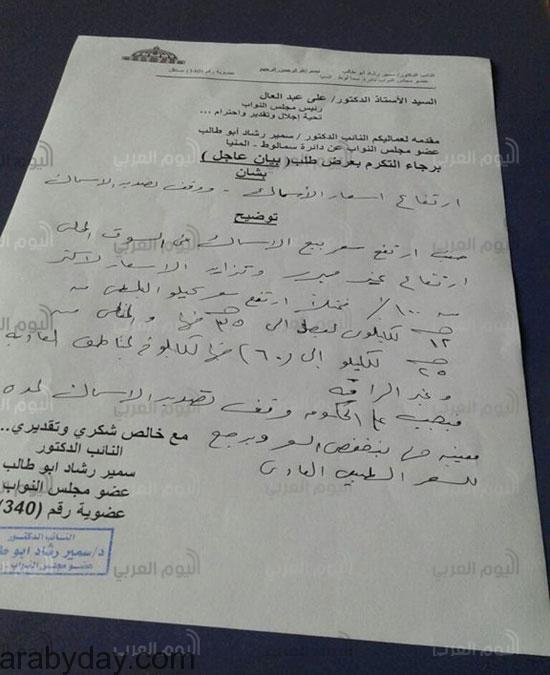 النائب الدكتور/ سمير رشاد أبو طالب
عضو مجلس النواب دائرة سمالوط - المنيا
بسم الله الرحمن الرحيم
عضوية رقم (340) مستقل
السيد الأستاذ الدكتور/ على عبد العال
رئيس مجلس النواب
تحية إجلال وتقدير واحترام ...
مقدمه لمعاليكم النائب الدكتور / سمير رشاد ابو طالب
عضو مجلس النواب عن دائرة سمالوط - المنيا
برجاء التكرم بعرض طلب( بيان عاجل )
بشان
ارتفاع اسعار الأسماك - ووقف تصدير الاسماك
توضيح
حيث ارتفع سعر بيع الاسماك فى السوق المحلى
ارتفاع غير مبرر وتزايد الاسعار لاكثر
من ١٠٠٪ فمثلا ارتفع سعر كيلو البلطى من
١٢ جـ للكيلو ليصل الى ٣٥ جنيها والبلطى من
٢٥ جـ للكيلو إلى (٦٠) جنيها للكيلو فى المناطق العادية
وغير الراقية
فيجب على الحكومة وقف تصدير الاسماك لمدة
معينة حتى ينخفض السعر ويرجع
للسعر الطبيعى العادى
مع خالص شكري وتقديري..
النائب الدكتور
سمير رشاد ابو طالب
عضو مجلس النواب
عضوية رقم (340)
النائب الدكتور
د/ سمير رشاد ابو طا
عضو مجلس النواب
اليوم العربي
arabyday.com